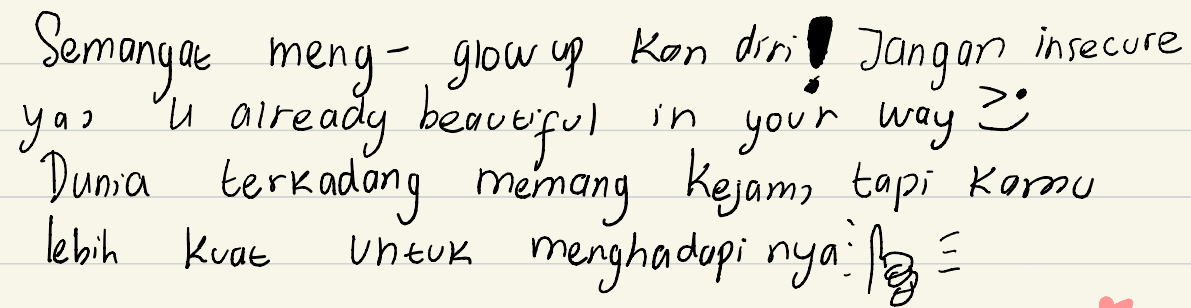 Semangat meng- glow up kan diri! Jangan insecure
ya, u already beautiful in your way
Dunia terkadang memang kejam, tapi kamu
lebih kuat untuk menghadapi nya